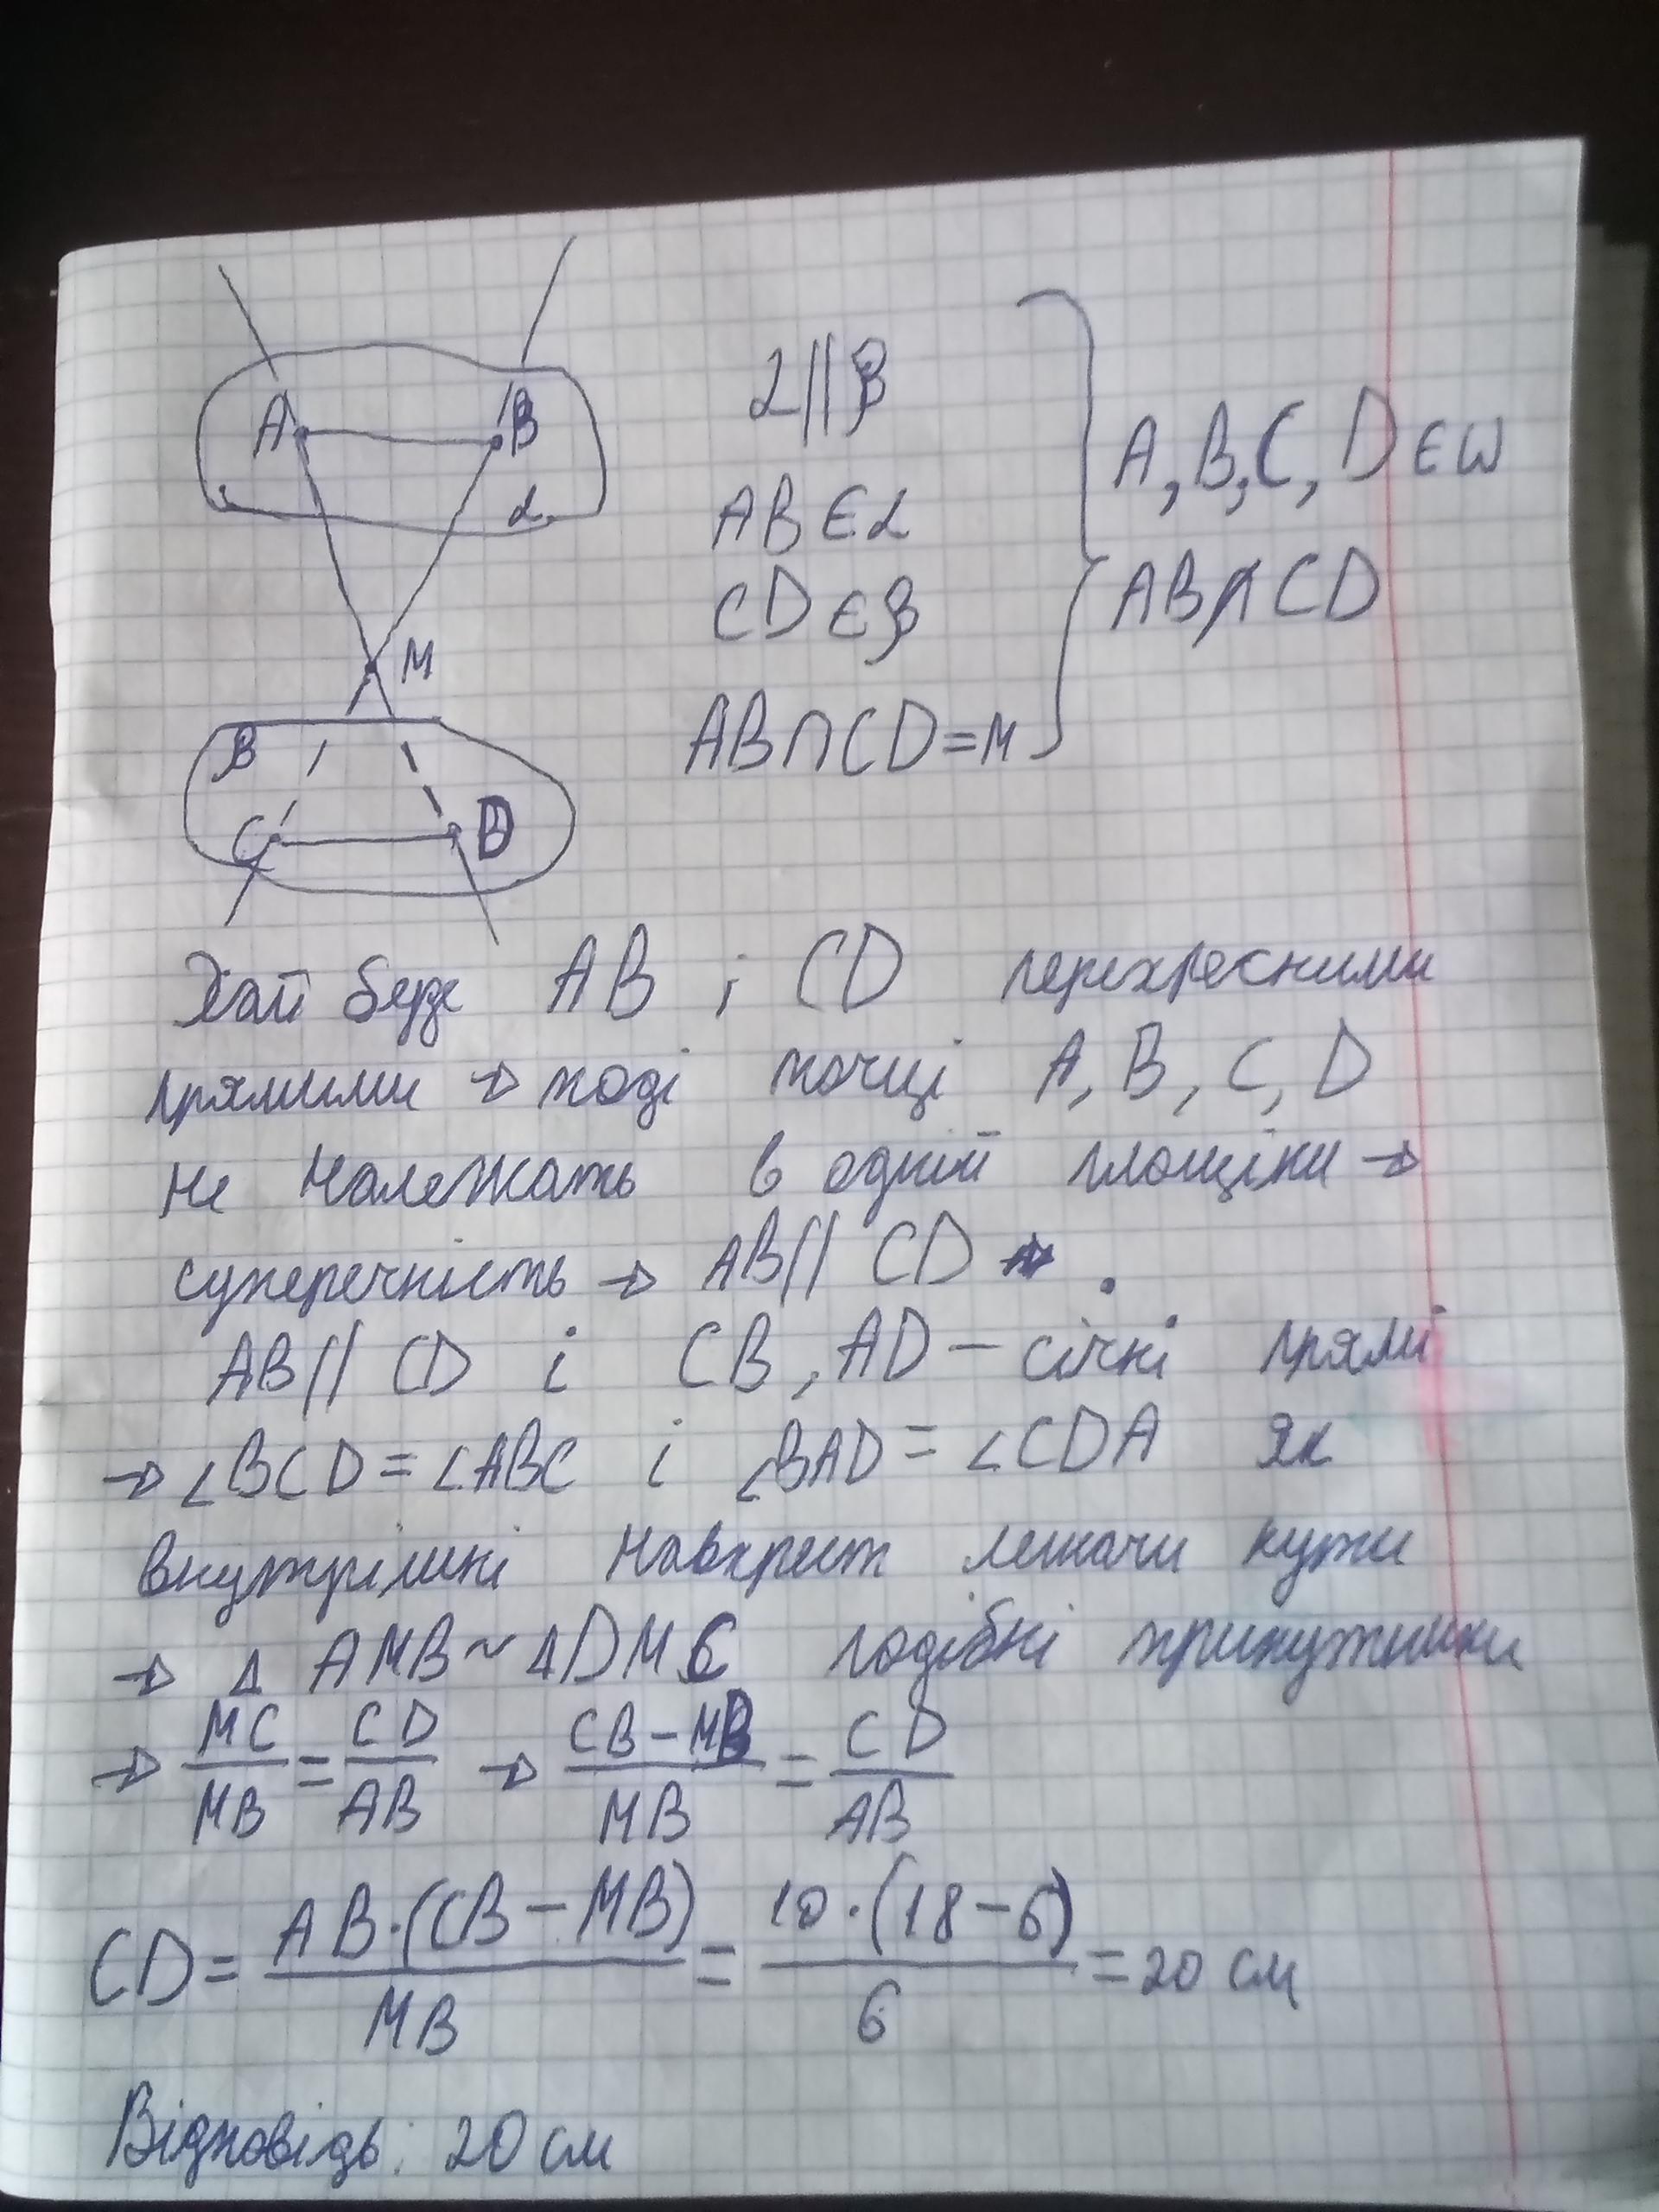 A B
α
M
β
C D
α||β
AB∈α
CD∈β
AB∩CD=M
A,B,C,D∈ω
AB∩̸CD
Хай буде AB і CD перехресними
прямими → тоді точці A, B, C, D
не належать в одній площіни →
суперечність → AB||CD .
AB||CD і CB, AD – січні прямі
→ ∠BCD = ∠ABC і ∠BAD = ∠CDA як
внутрішні навхрест лежачи кути
→ Δ AMB ~ ΔDMC подібні трикутники
→ MC/MB = CD/AB → (CB-MB)/MB = CD/AB
CD = AB·(CB-MB)/MB = 10·(18-6)/6 = 20 см
Відповідь: 20 см